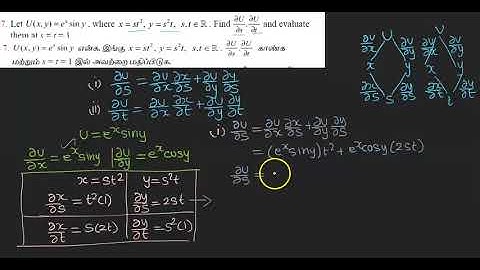 7. Let U(x, y) = eˣ sin y, where x = st², y = s²t, s,t ∈ ℝ. Find ∂U/∂s, ∂U/∂t, and evaluate
them at s = t = 1
7. U(x, y) = eˣ sin y என்க. இங்கு x = st², y = s²t, s,t ∈ ℝ. ∂U/∂s, ∂U/∂t காண்க
மற்றும் s = t = 1 இல் அவற்றை மதிப்பிடுக.
(i) ∂U/∂S = ∂U/∂x ∂x/∂S + ∂U/∂y ∂y/∂S
(ii) ∂U/∂t = ∂U/∂x ∂x/∂t + ∂U/∂y ∂y/∂t
U = eˣsiny
∂U/∂x = eˣsiny | ∂U/∂y = eˣcosy
x = St² | y = S²t
∂x/∂S = t²(1) | ∂y/∂S = 2St
∂x/∂t = S(2t) | ∂y/∂t = S²(1)
(i) ∂U/∂S = ∂U/∂x ∂x/∂S + ∂U/∂y ∂y/∂S
= (eˣsiny)t² + eˣcosy(2St)
∂U/∂S =
U U
∂U/∂x ∂U/∂y ∂U/∂x ∂U/∂y
x y x y
∂x/∂S ∂y/∂S ∂x/∂t ∂y/∂t
S t